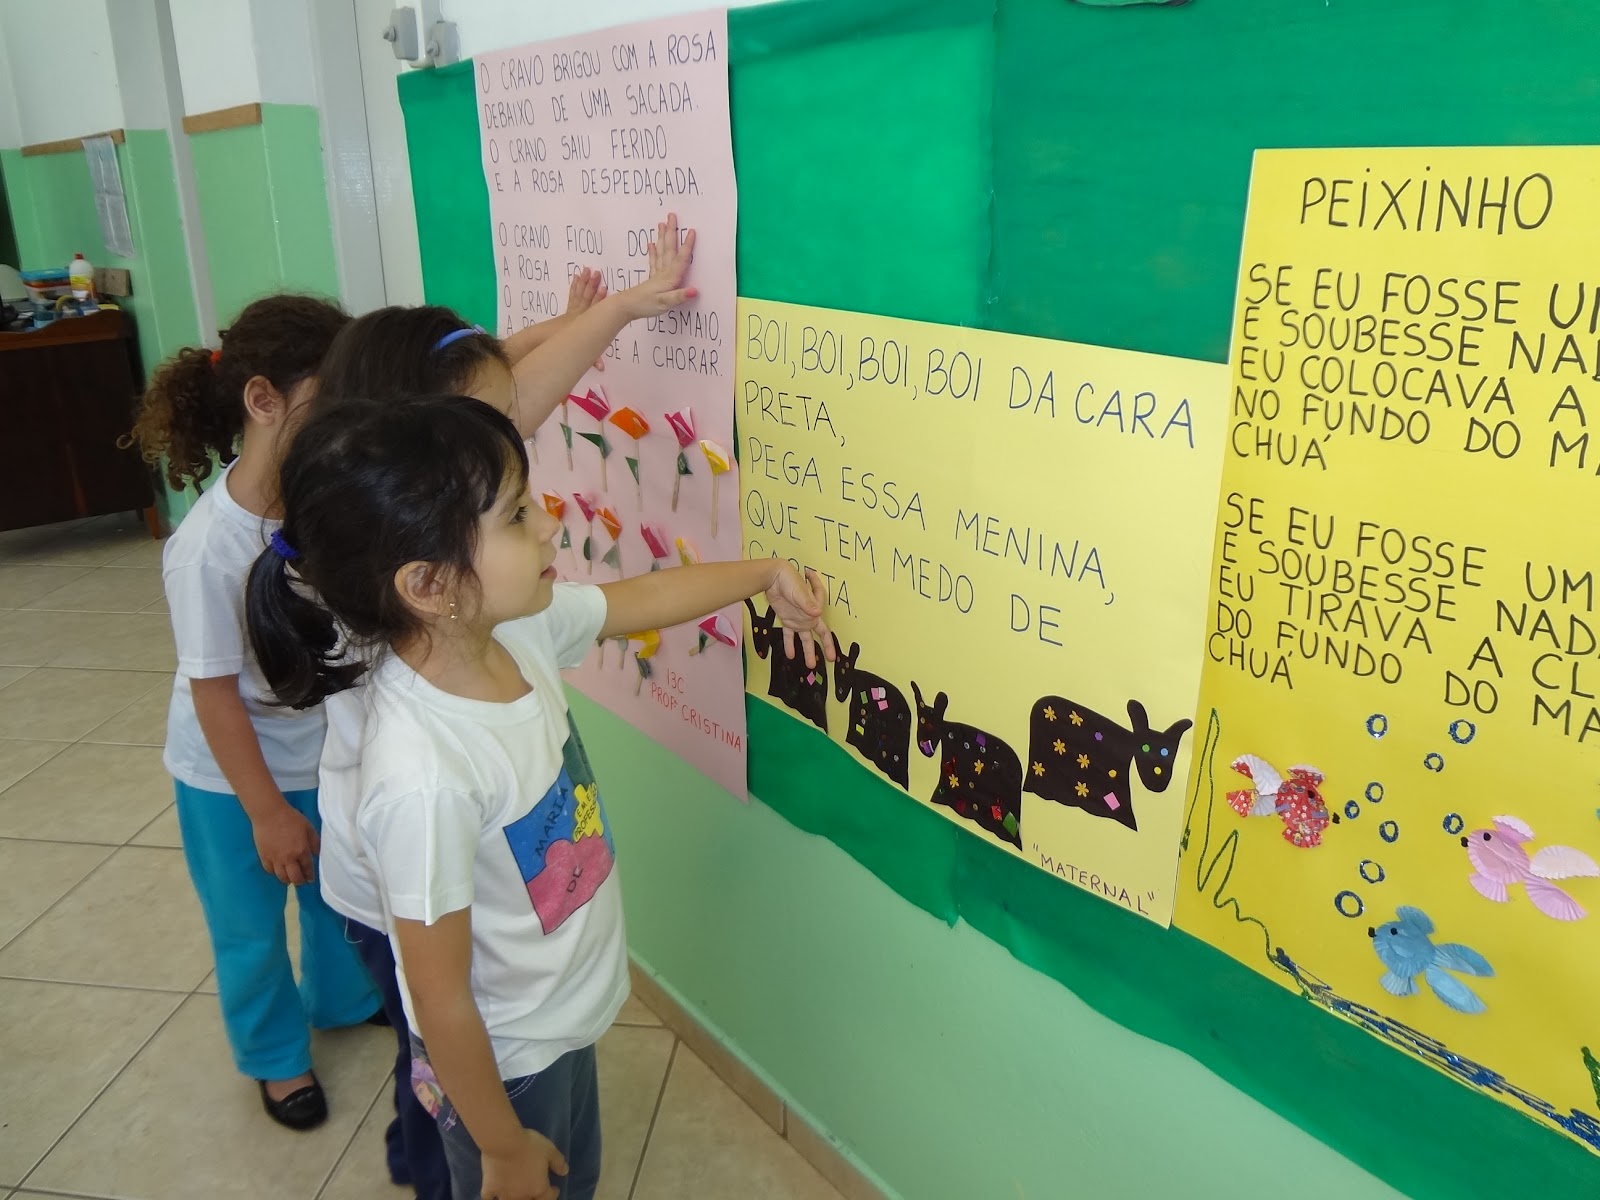 O CRAVO BRIGOU COM A ROSA
DEBAIXO DE UMA SACADA.
O CRAVO SAIU FERIDO
E A ROSA DESPEDAÇADA.
O CRAVO FICOU
A ROSA
O CRAVO DESMAIO,
A SE A CHORAR.
13C
PROFª CRISTINA
BOI, BOI, BOI, BOI DA CARA
PRETA,
PEGA ESSA MENINA,
QUE TEM MEDO DE
"MATERNAL"
PEIXINHO
SE EU FOSSE
E SOUBESSE
EU COLOCAVA A
NO FUNDO DO
CHUÁ
SE EU FOSSE UM
E SOUBESSE
EU TIRAVA A
DO FUNDO DO
CHUÁ
MARIA
DE